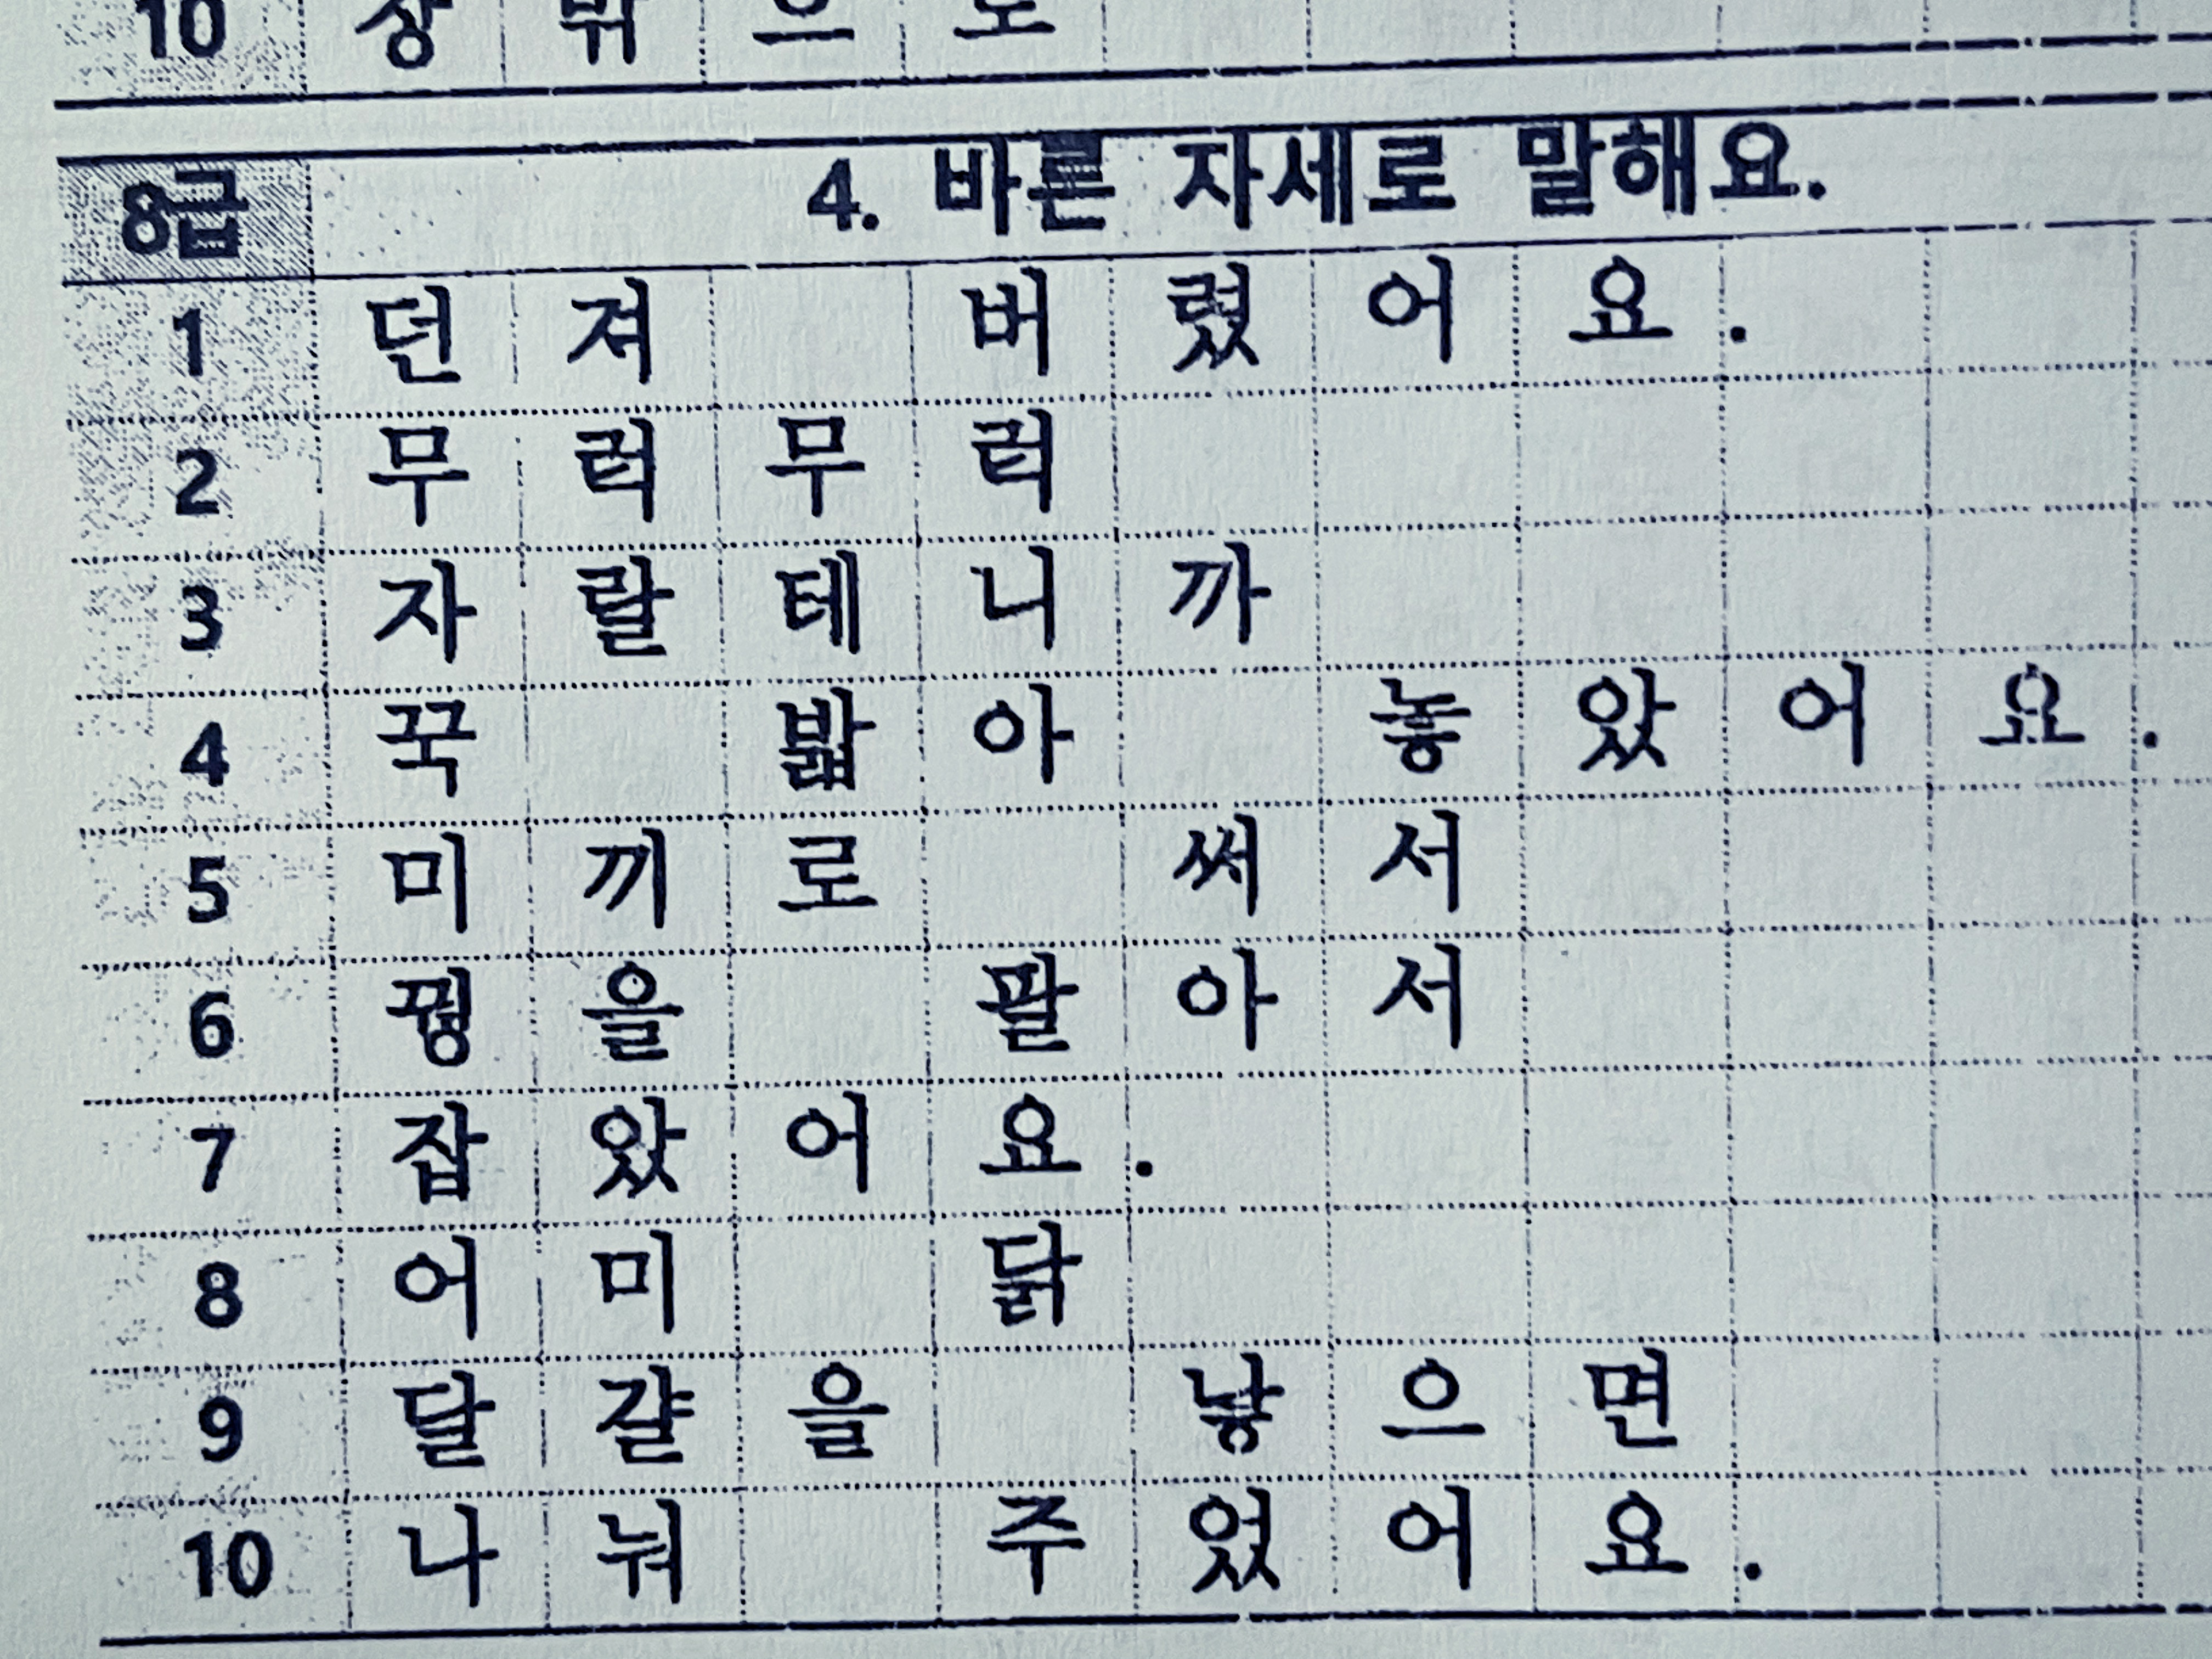 10 상밖으로
8급 4. 바른 자세로 말해요.
1 던져 버렸어요.
2 무럭무럭
3 자랄테니까
4 꾹 밟아 놓았어요.
5 미끼로 써서
6 꿩을 팔아서
7 잡았어요.
8 어미 닭
9 달걀을 낳으면
10 나눠 주었어요.